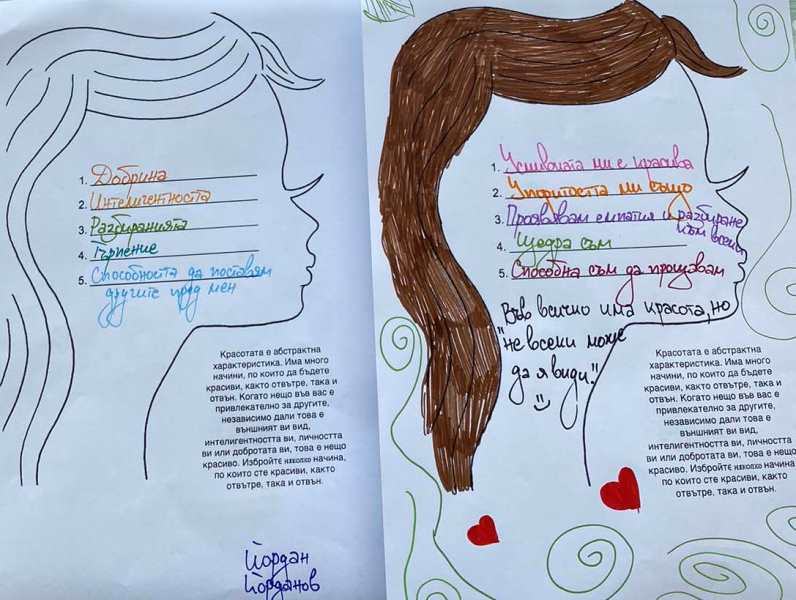 1. Добрина
2. Интелигентността
3. Разбиранията
4. Търпение
5. Способността да поставям
другите пред мен
Красотата е абстрактна
характеристика. Има много
начини, по които да бъдете
красиви, както отвътре, така и
отвън. Когато нещо във вас е
привлекателно за другите,
независимо дали това е
външният ви вид,
интелигентността ви, личността
ви или добротата ви, това е нещо
красиво. Избройте няколко начина,
по които сте красиви, както
отвътре, така и отвън.
Йордан
Йорданов
1. Усмивката ми е красива
2. Упоритостта ми също
3. Проявявам емпатия и разбиране
към всеки
4. Щедра съм
5. Способна съм да прощавам
"Във всичко има красота, но
не всеки може
да я види."
Красотата е абстрактна
характеристика. Има много
начини, по които да бъдете
красиви, както отвътре, така и
отвън. Когато нещо във вас е
привлекателно за другите,
независимо дали това е
външният ви вид,
интелигентността ви, личността
ви или добротата ви, това е нещо
красиво. Избройте няколко начина,
по които сте красиви, както
отвътре, така и отвън.